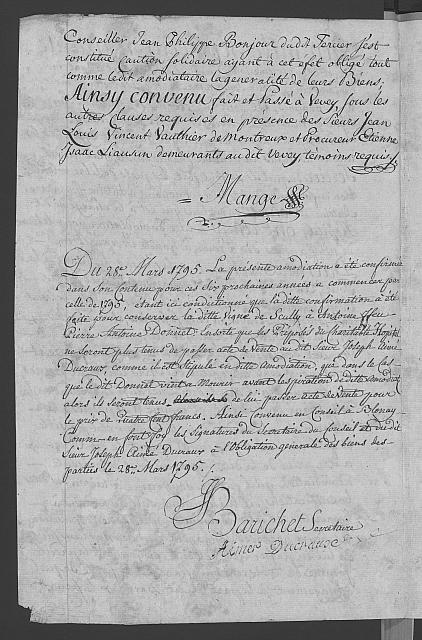 Conseiller Jean Philippe Bonjour du dit Tercier s'est
constitué caution solidaire ayant à cet efet obligé tout
comme le dit amodiataire la generalité de leurs Biens,
Ainsy convenu fait et Passé à Vevey, sous les
autres clauses requises en presence des Sieurs Jean
Louis Vincent Vauthier de Montreux et Procureur Etienne
Isaac Liausun demeurants au dit Vevey temoins requis.
= Mange
Du 28e. Mars 1795. La présente amodiation a été confirmée
dans son contenu pour ces Six prochaines années a commencer par
celle de 1795, étant ici conditionné que la ditte confirmation a été
faite pour conserver la ditte Vigne de Scully à Antoine ffeu
Pierre Antoine Donnet. Ensorte que les Préposés du charitable Hopital
ne seront plus tenus de passer acte de Vente au dit Sieur Joseph Aimé
Ducraux, comme il est stipulé en ditte Amodiation, que dans le cas
que le dit Donnet vint a Mourir avant l'expiration de ditte Amodiat.
alors ils seront tenus, de lui passer acte de Vente pour
le prix de cent francs. Ainsi Convenu en Conseil à Blonay
Comme en font foy les signatures du Secretaire du Conseil et du dit
Sieur Joseph Aimé Ducraux à l'Obligation generale des biens des
parties le 28e. Mars 1795.
Barichet Secretaire
Aimer Ducraux